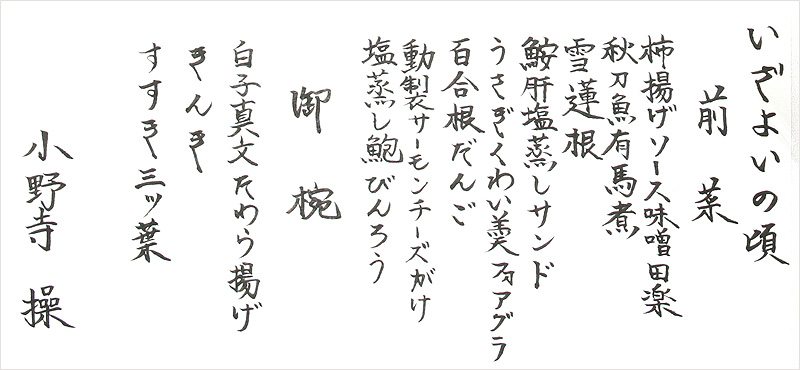 いざよいの頃
前菜
柿揚げソース味噌田楽
秋刀魚有馬煮
雪蓮根
鮟肝塩蒸しサンド
うさぎくわい羹フォアグラ
百合根だんご
動製サーモンチーズがけ
塩蒸し鮑びんろう
御椀
白子真文たわら揚げ
きんき
すすき三ッ葉
小野寺 操